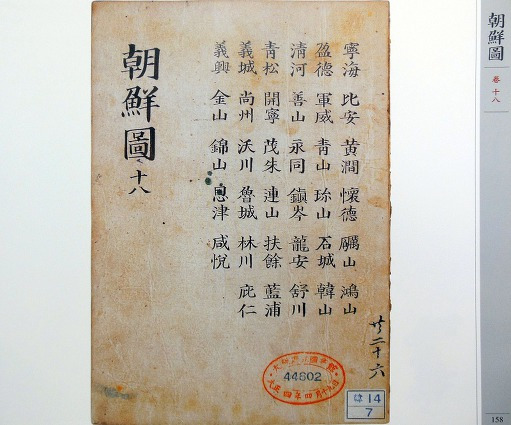 朝鮮圖
卷十八
寧海 比安 黃澗 懷德 礪山 鴻山
盈德 軍威 青山 珎山 石城 韓山
清河 善山 永同 鎭岑 龍安 舒川
青松 開寧 茂朱 連山 扶餘 藍浦
義城 尚州 沃川 魯城 林川 庇仁
義興 金山 錦山 恩津 咸悅
朝鮮圖 十八
二十六
44802
大正四年四月十九日
韓14
7
158